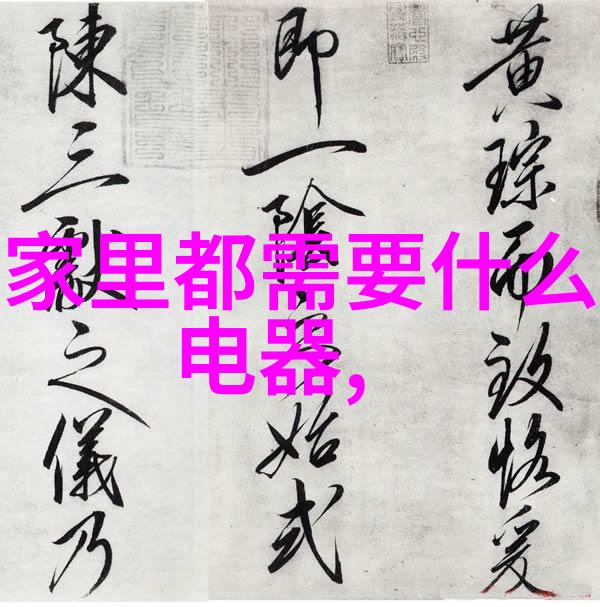 黄琮而致恪爰
即一陰始式
陳三獻之儀乃
家里都需要什么
电器,